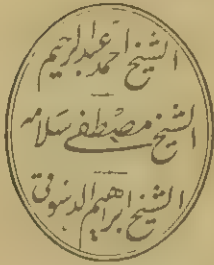 الشيخ احمد عبد الرحيم
الشيخ مصطفى سلامه
الشيخ ابراهيم الدسوقى